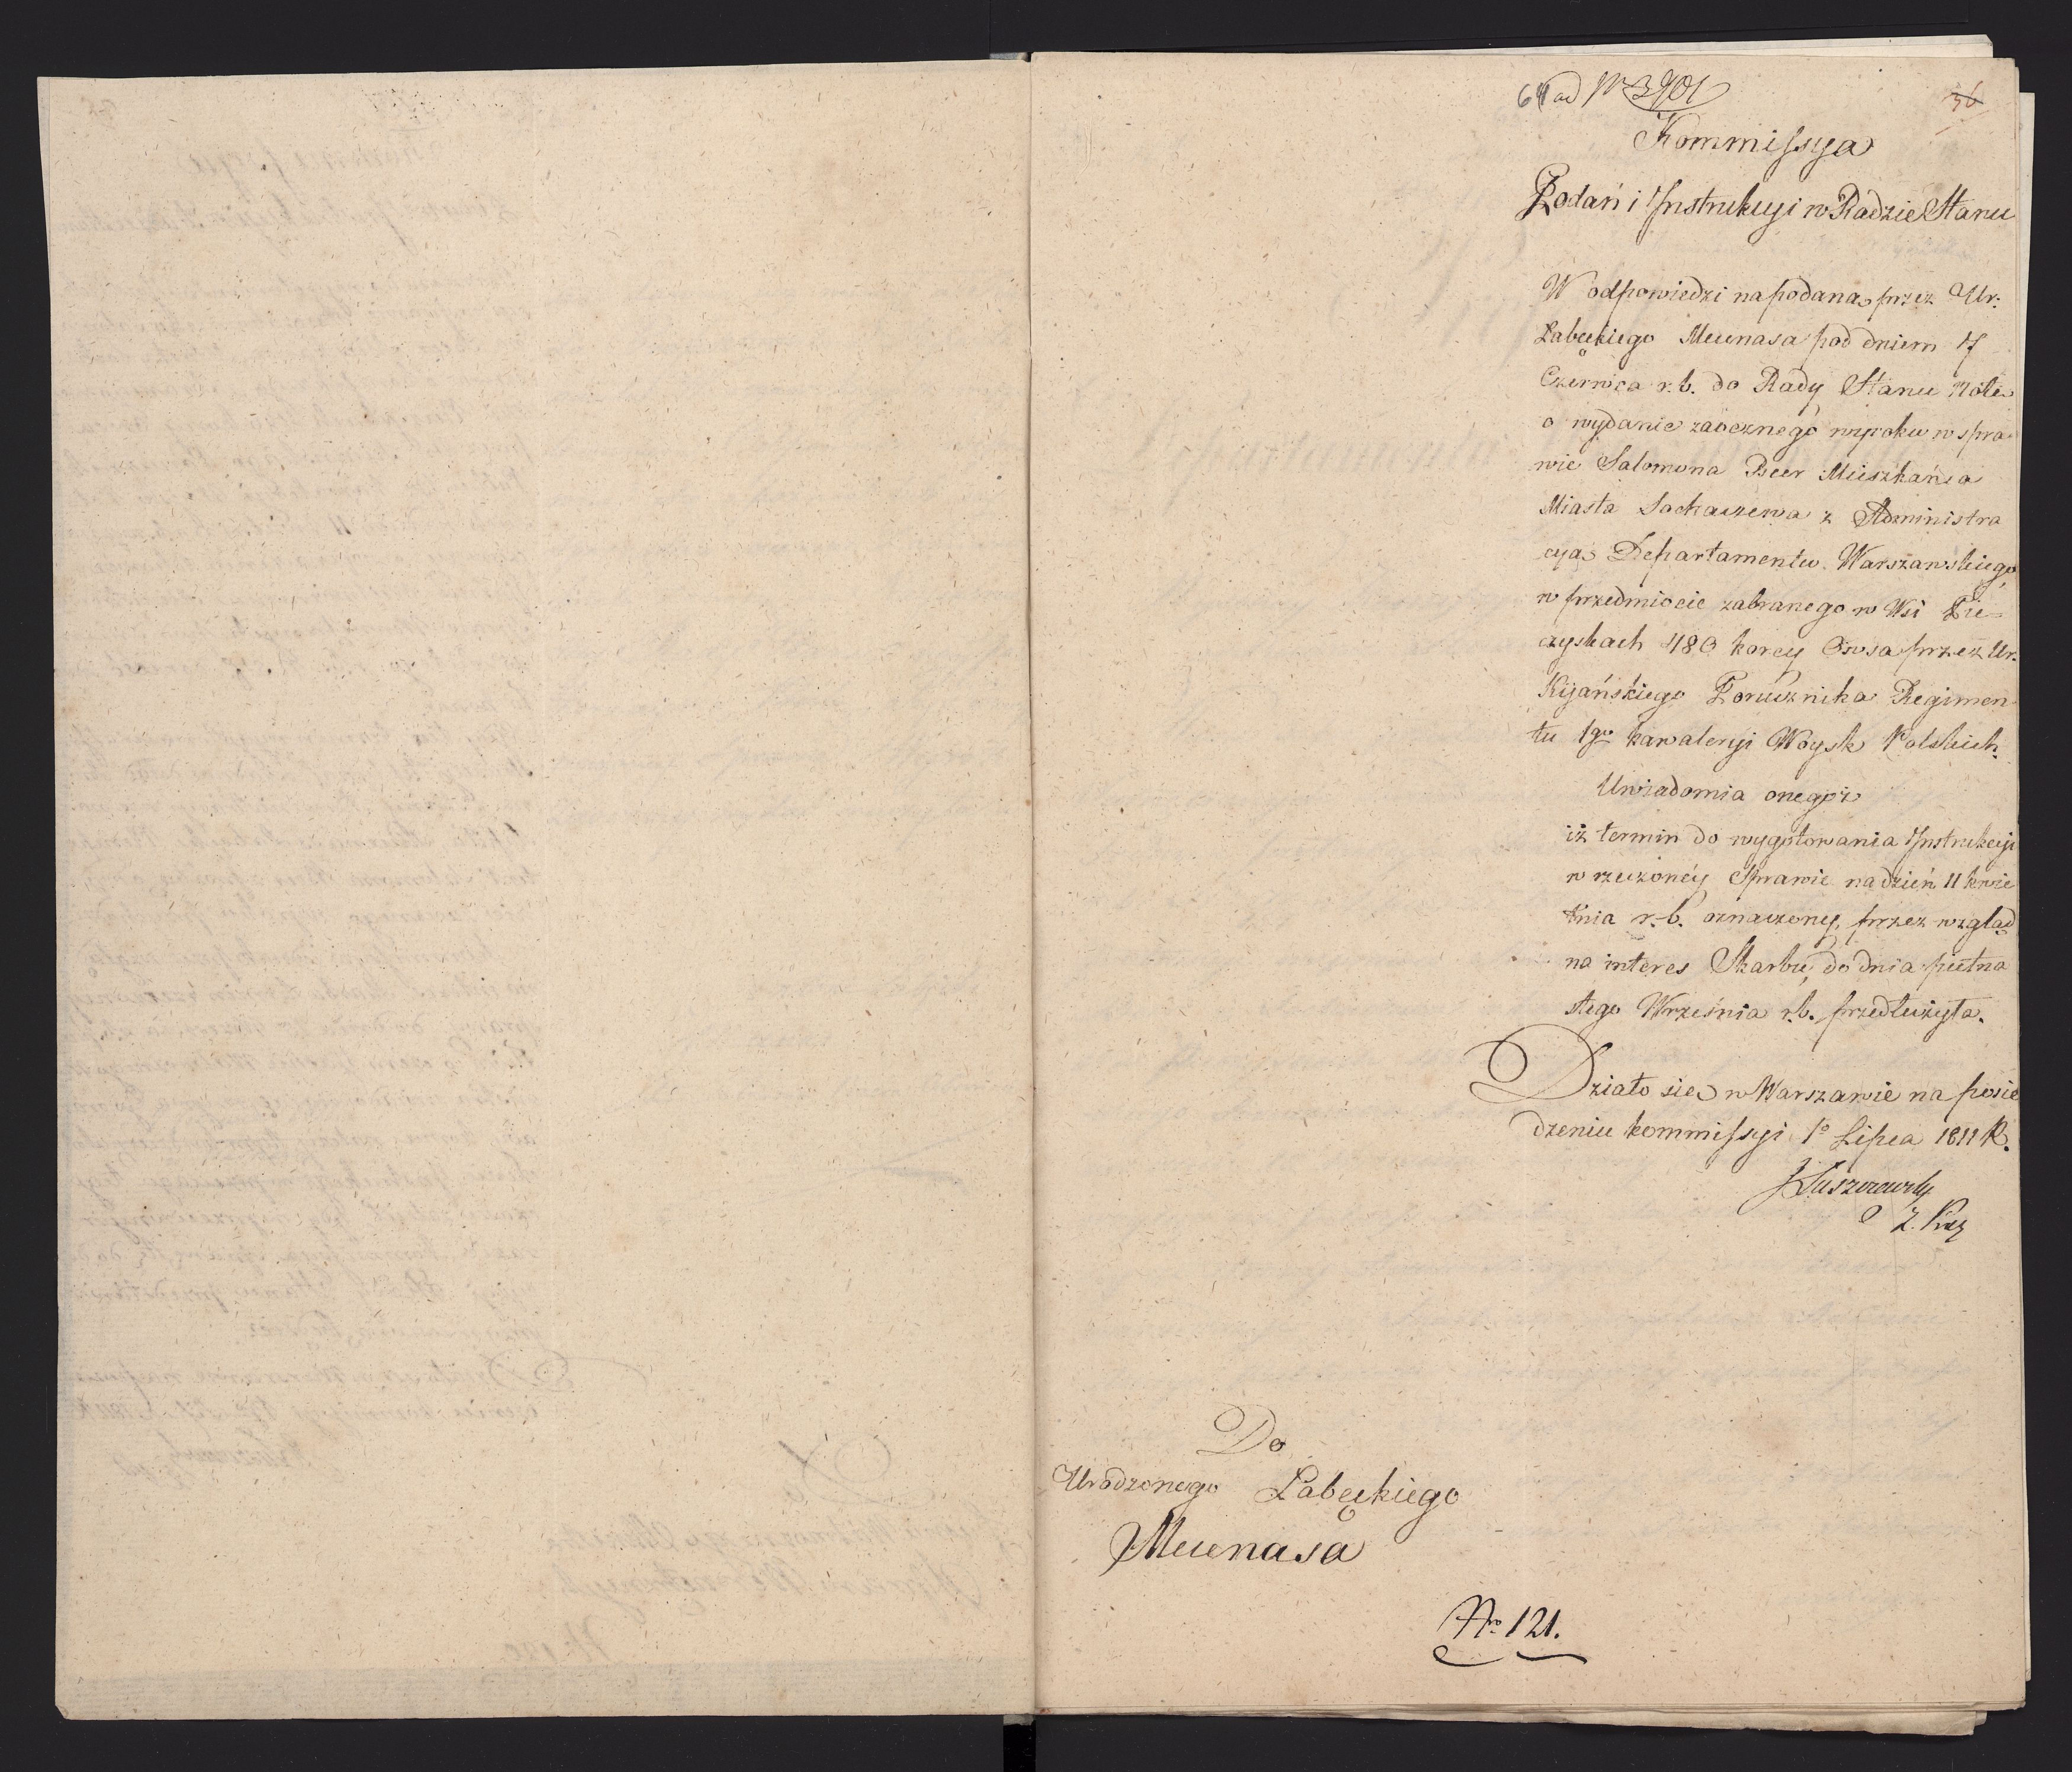 64 ad Nr 3901
36
Kommissya
Podań i Instrukcyi w Radzie Stanu
W odpowiedzi na podaną przez Ur:
Łabęckiego Mecenasa pod dniem 17
Czerwca r. b. do Rady Stanu Notę
o wydanie zaocznego wyroku w spra
wie Salomona Beer Mieszkańca
Miasta Sochaczewa z Administra
cyą Departamentu Warszawskiego
w przedmiocie zabranego w Wsi Pie-
czyskach 480 korcy Owsa przez Ur.
Kijańskiego Porucznika Regimen
tu 1go kawaleryi Woysk Polskich.
Uwiadomia onegoż
iż termin do wygotowania Instrukcyi
w rzeczonéy Sprawie na dzień 11 kwie
tnia r. b. oznaczony, przez wzgląd
na interes Skarbu, do dnia pietna
stego Września r. b. przedłużyła.
Działo się w Warszawie na posie
dzeniu kommissyi 1o Lipca 1811 R.
Z. Pisz
Do
Urodzonego Łabęckiego
Mecenasa
No 121.